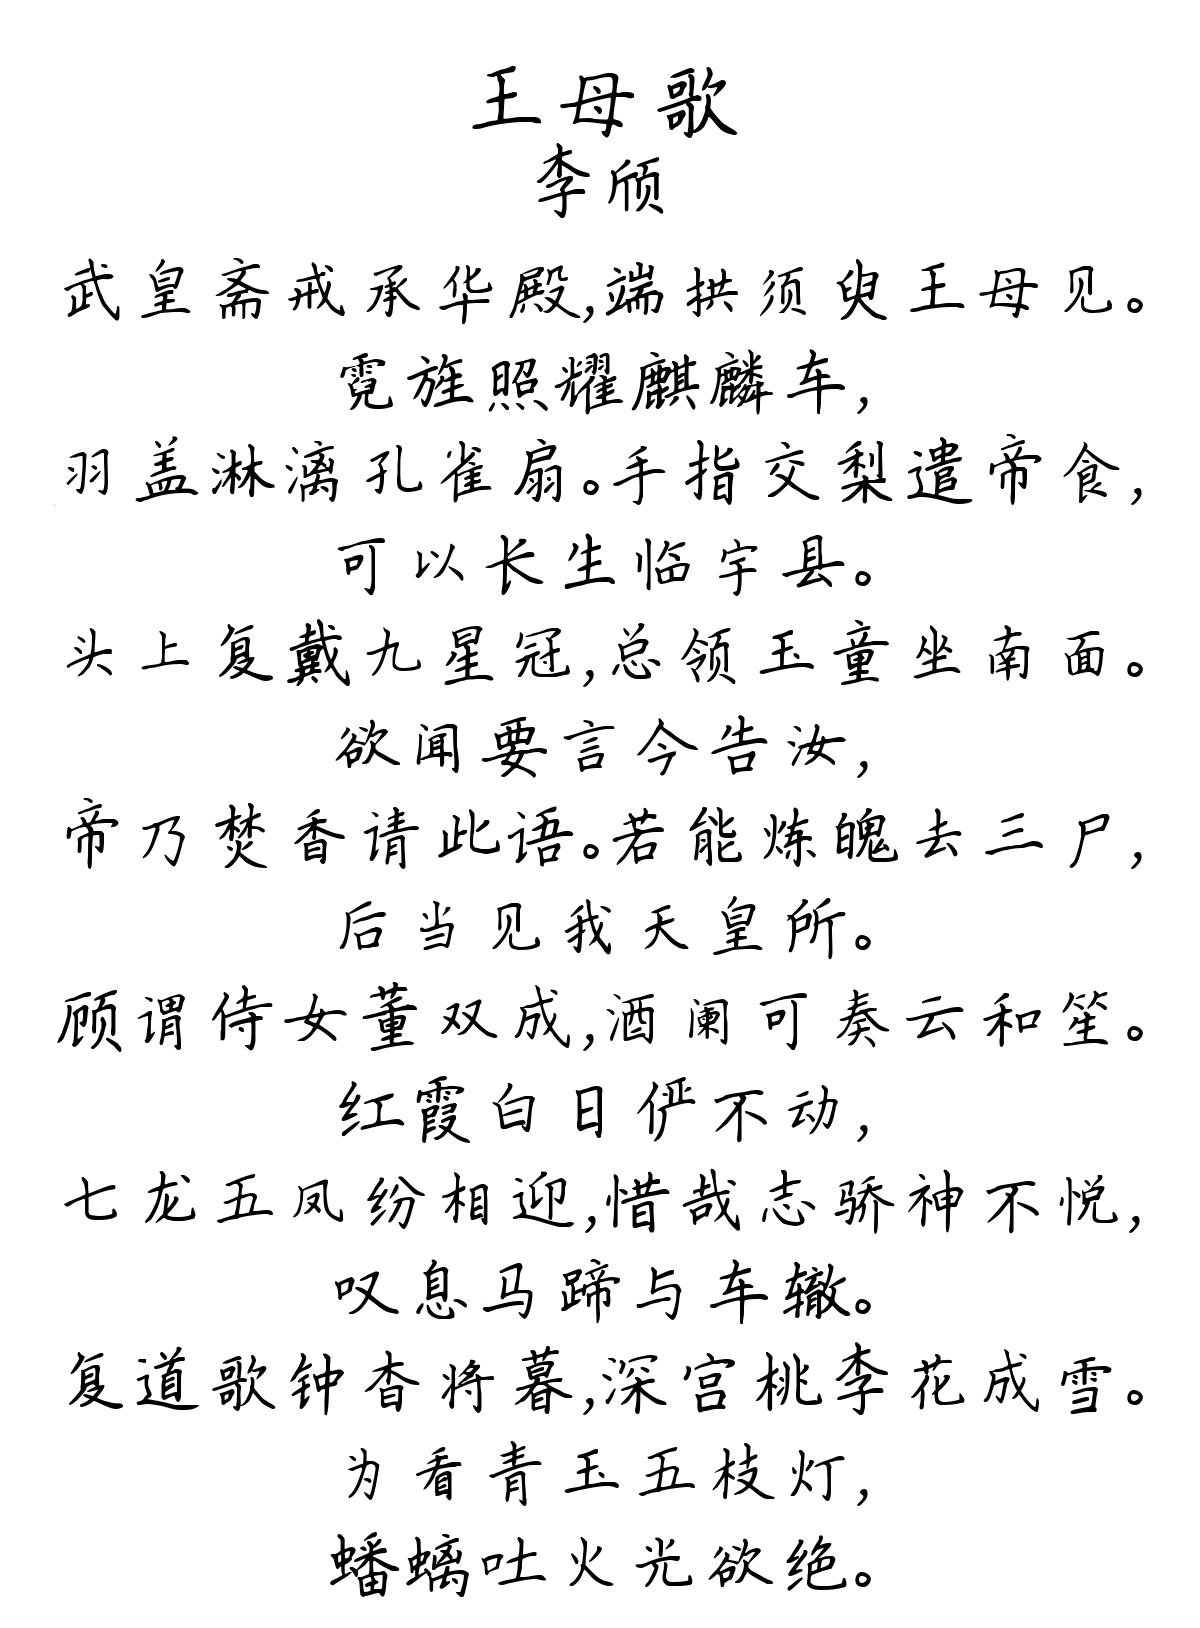 王母歌
李颀
武皇斋戒承华殿,端拱须臾王母见。
霓旌照耀麒麟车,
羽盖淋漓孔雀扇。手指交梨遣帝食,
可以长生临宇县。
头上复戴九星冠,总领玉童坐南面。
欲闻要言今告汝,
帝乃焚香请此语。若能炼魄去三尸,
后当见我天皇所。
顾谓侍女董双成,酒阑可奏云和笙。
红霞白日俨不动,
七龙五凤纷相迎,惜哉志骄神不悦,
叹息马蹄与车辙。
复道歌钟杳将暮,深宫桃李花成雪。
为看青玉五枝灯,
蟠螭吐火光欲绝。